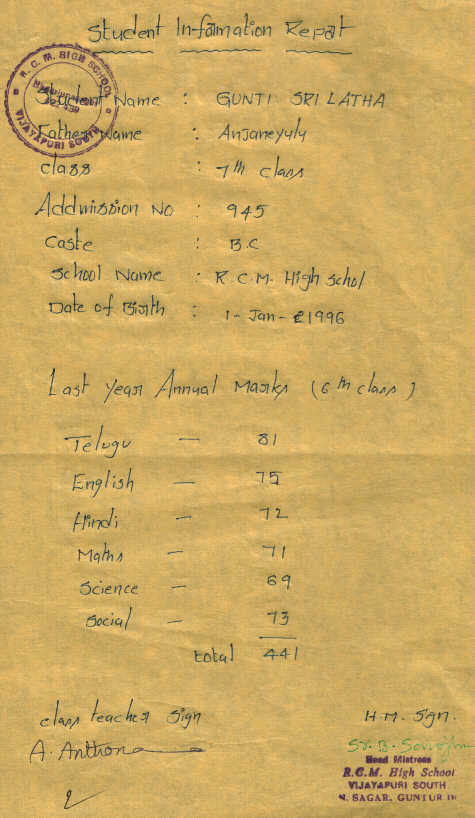 Student Information Report
R.C.M. HIGH SCHOOL
VIJAYAPURI SOUTH
Student Name : GUNTI SRI LATHA
Father Name : Anjaneyulu
class : 7th class
Addmission No : 945
Caste : B.C
School Name : R.C.M. High Schol
Date of Birth : 1-Jan-1996
Last Year Annual Marks (6th class)
Telugu — 81
English — 75
Hindi — 72
Maths — 71
Science — 69
Social — 73
total 441
class teacher Sign
H.M. Sign.
A. Anthona
Sr. B.
Head Mistress
R.C.M. High School
VIJAYAPURI SOUTH
N. SAGAR, GUNTUR Dt